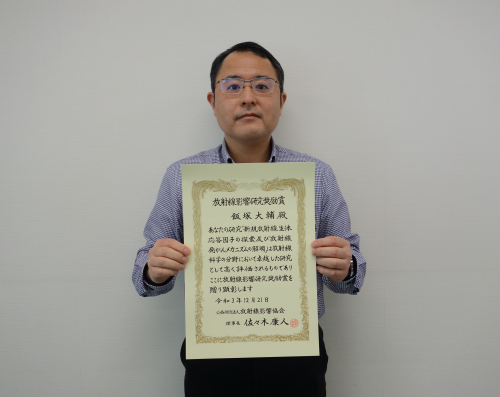 放射線影響研究奨励賞
飯塚大輔殿
あなたの研究「新規放射線生体
応答因子の探索及び放射線
発がんメカニズムの解明」は放射線
科学の分野において卓越した研究
として高く評価されるものであり
ここに放射線影響研究奨励賞を
贈り顕彰します
令和3年12月21日
公益財団法人放射線影響協会
理事長 佐々木康人